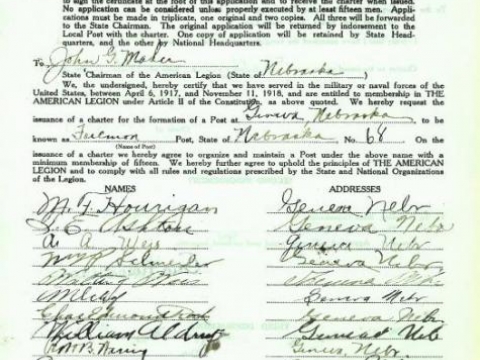 to sign the certificate at the foot of this application and to receive the charter when issued.
No application can be considered unless properly executed by at least fifteen men. Appli-
cations must be made in triplicate, one original and two copies. All three will be forwarded
to the State Chairman. The original application will be returned by indorsement to the
Local Post with the charter. One copy of application will be retained by State Head-
quarters, and the other by National Headquarters.
To John G. Maher
State Chairman of the American Legion (State of Nebraska)
We, the undersigned, hereby certify that we have served in the military or naval forces of the
United States, between April 6, 1917, and November 11, 1918, and are entitled to membership in THE
AMERICAN LEGION under Article II of the Constitution, as above quoted. We hereby request the
issuance of a charter for the formation of a Post at Geneva Nebraska to be
known as Post, State of Nebraska No. 68 On the
(Name of Post)
issuance of a charter we hereby agree to organize and maintain a Post under the above name with a
minimum membership of fifteen. We hereby further agree to uphold the principles of THE AMERICAN
LEGION and to comply with all rules and regulations prescribed by the State and National Organizations
of the Legion.
NAMES ADDRESSES
M. F. Hourigan Geneva Nebr
Ashton Geneva Nebr
A. A. Geneva Nebr
Geneva Nebr
Geneva
Geneva Nebr
Geneva Nebr
William Aldrup Geneva Neb
B. Waring Geneva Nebr